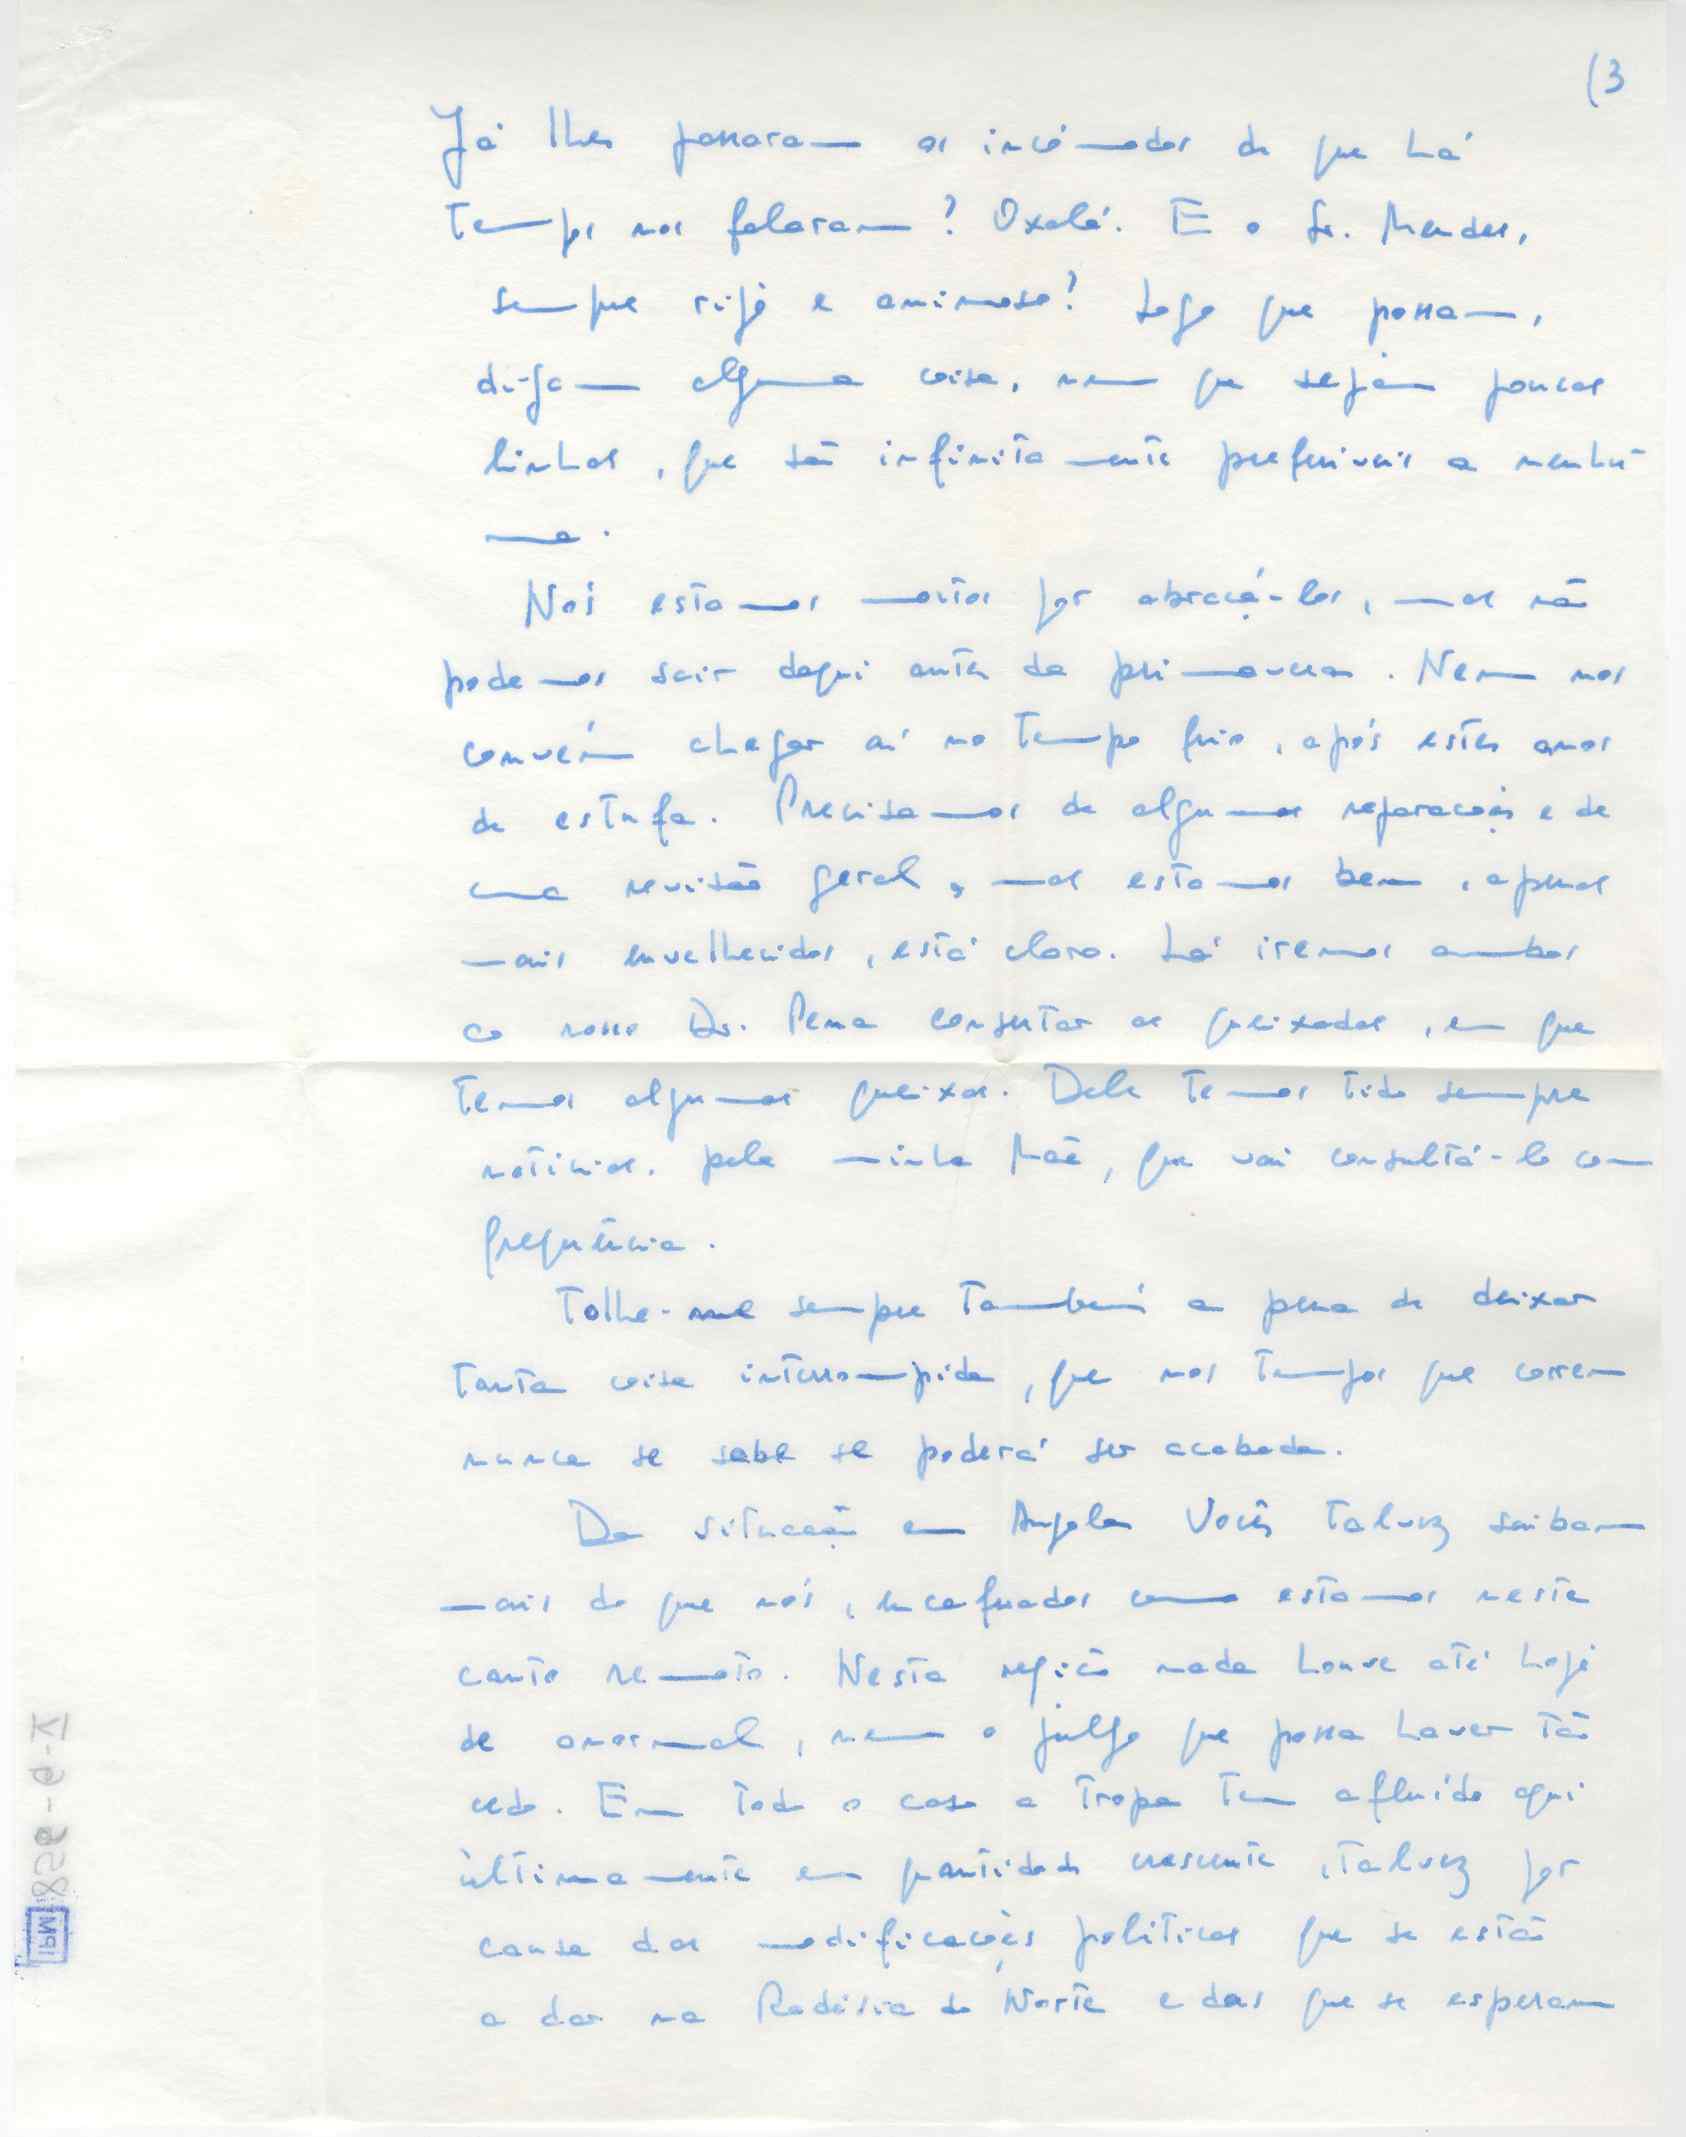 (3
Já lhes passaram os incómodos de que há
tempos nos falaram? Oxalá. E o Sr. Mendes,
sempre rijo e animoso? Logo que possam,
digam alguma coisa, nem que sejam poucas
linhas, que são infinitamente preferíveis a nenhu-
ma.
Nós estamos mortos por abraçá-los, mas não
podemos sair daqui antes da primavera. Nem nos
convém chegar aí no tempo frio, após estes anos
de estufa. Precisamos de algumas reparações e de
uma revisão geral, mas estamos bem, apenas
mais envelhecidos, está claro. Lá iremos ambos
ao nosso Dr. Pena consertar as queixadas, em que
temos algumas queixas. Dele temos tido sempre
notícias, pela minha Mãe, que vai consultá-lo com
frequência.
Tolhe-me sempre também a pena de deixar
tanta coisa interrompida, que nos tempos que correm
nunca se sabe se poderá ser acabada.
Da situação em Angola Vocês talvez saibam
mais do que nós, encafuados como estamos neste
canto remoto. Nesta região nada houve até hoje
de anormal, nem o julgo que possa haver tão
cedo. Em todo o caso a tropa tem afluído aqui
ùltimamente em quantidade crescente, talvez por
causa das modificações políticas que se estão
a dar na Rodésia do Norte e das que se esperam
IPM 8528-G-V